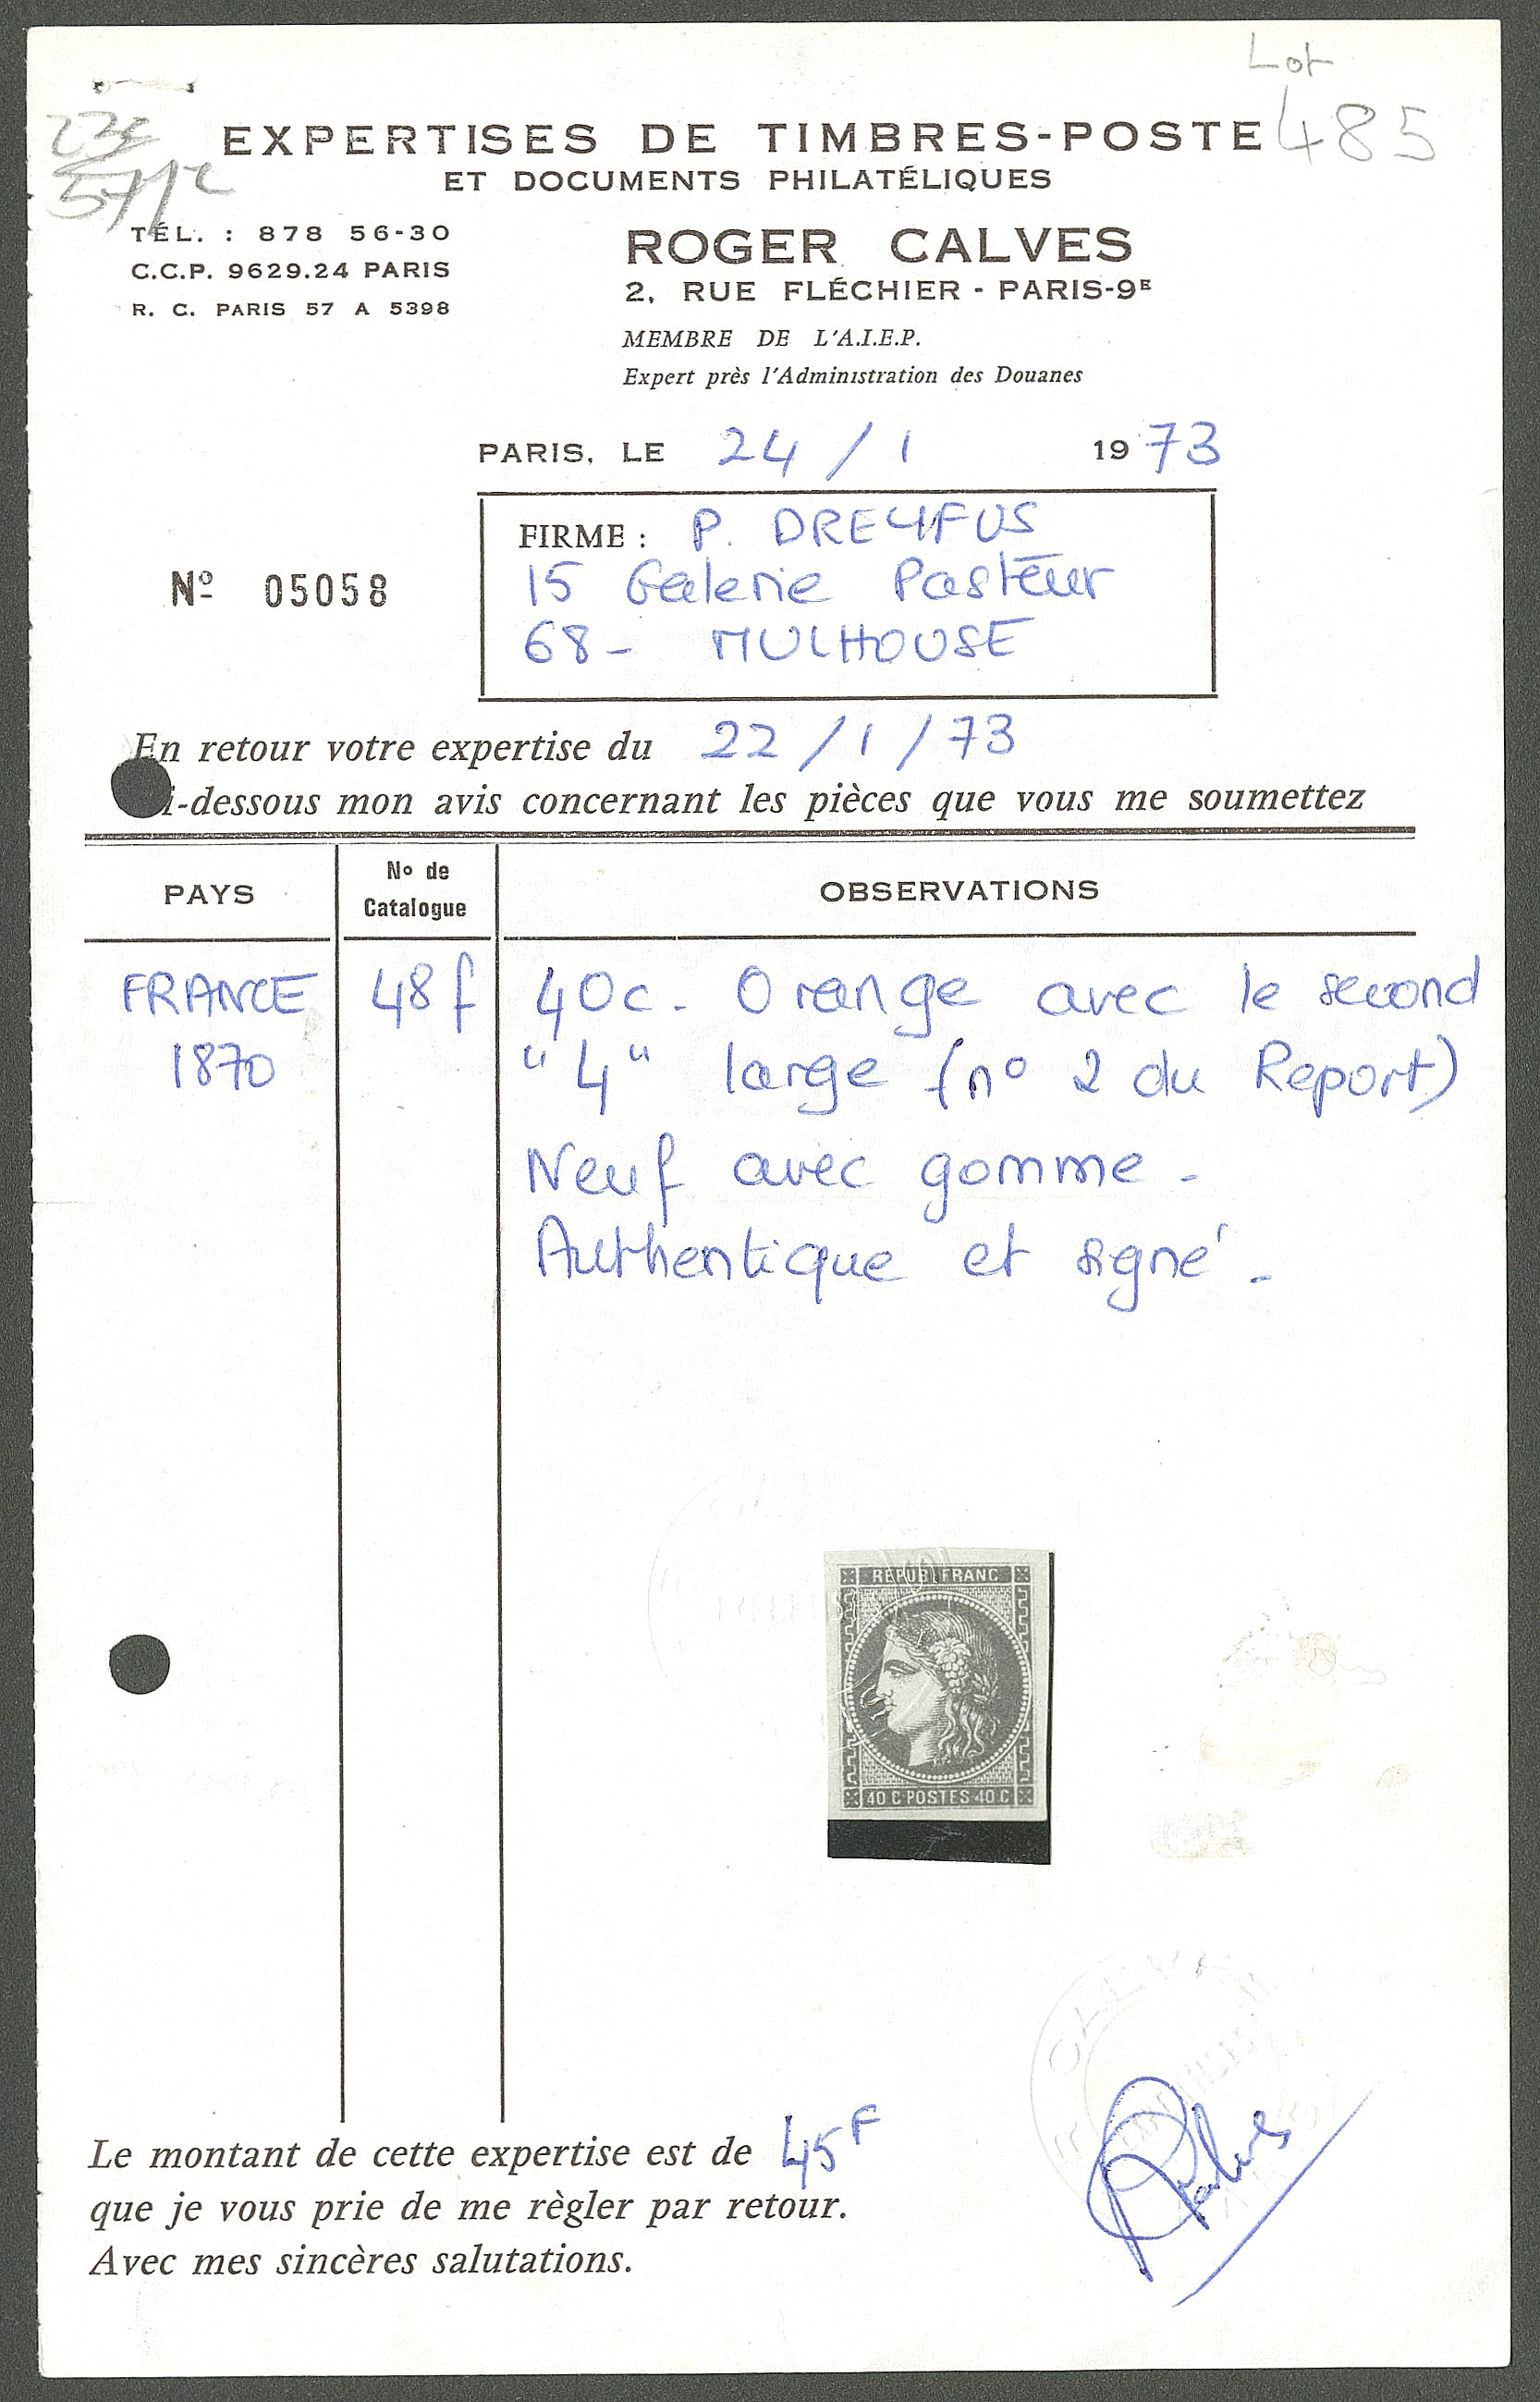 Lot
485
EXPERTISES DE TIMBRES-POSTE
ET DOCUMENTS PHILATÉLIQUES
TÉL. : 878 56-30
C.C.P. 9629.24 PARIS
R. C. PARIS 57 A 5398
ROGER CALVES
2, RUE FLÉCHIER - PARIS-9E
MEMBRE DE L'A.I.E.P.
Expert près l'Administration des Douanes
PARIS, LE 24 / 1 1973
FIRME : P. DREYFUS
15 Galerie Pasteur
68 - MULHOUSE
Nº 05058
En retour votre expertise du 22 / 1 / 73
i-dessous mon avis concernant les pièces que vous me soumettez
PAYS
Nº de
Catalogue
OBSERVATIONS
FRANCE 48 f 40c. Orange avec le second
1870 "4" large (nº 2 du Report)
Neuf avec gomme -
Authentique et signé -
REPUB FRANC
40 C POSTES 40 C
Le montant de cette expertise est de 45F
que je vous prie de me règler par retour.
Avec mes sincères salutations.